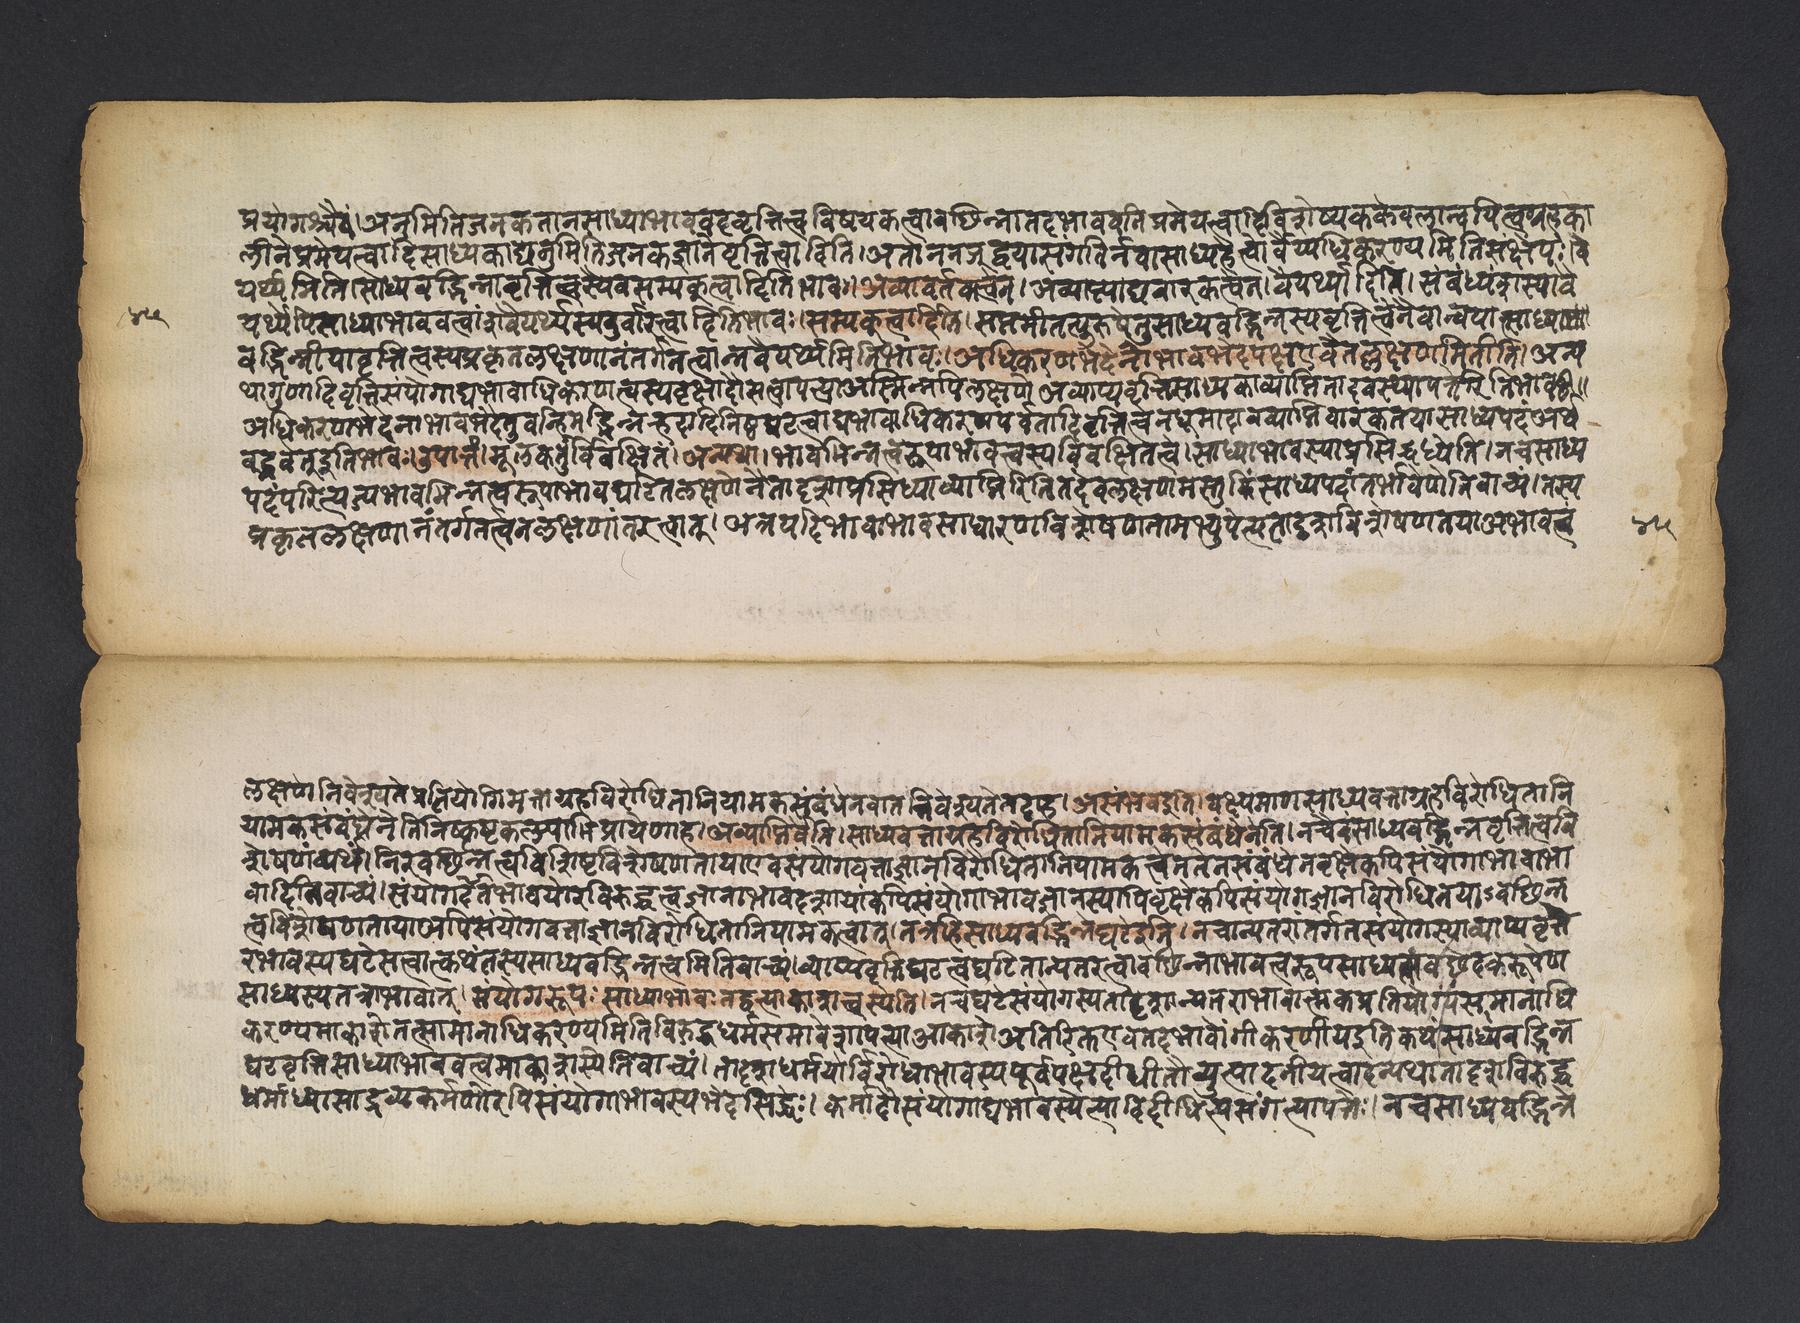 प्रयोगश्चैवं। अनुमितिजनकतानसाध्याभाववदवृत्तित्वविषयकत्वावच्छिन्नातदभाववतिप्रमेयत्वादिविशेष्यककेवलान्वयित्वग्रहका
लीनप्रमेयत्वादिसाध्यकाद्यनुमितिजनकज्ञानेवृत्तित्वादिति। अतोननञद्वयासंगतिर्नवासाध्यहेत्वोर्वैय्यधिकरण्यमितिसंक्षेपः। वै
यर्थ्यमिति। साध्यवद्भिन्नावृत्तित्वस्यैवसम्यक्त्वादितिभावः। अव्यावर्तकत्वेन। अव्याप्त्याद्यवारकत्वेन। वैयर्थ्यादिति। संबंध्यंशस्यावै
यर्थ्येपिसाध्याभाववत्वांशवैयर्थ्यस्यदुर्वारत्वादितिभावः। सम्यक्त्वादिति। सप्तमीतत्पुरुषेतुसाध्यवद्भिन्नस्यवृत्तित्वेनैवान्वयात्साध्य
वद्भिन्नीयावृत्तित्वस्यप्रकृतलक्षणानंतर्गतत्वान्नवैयर्थ्यमितिभावः। अधिकरणभेदेनाभावभेदपक्षएवैतल्लक्षणमितीति। अन्य
थागुणादिवृत्तिसंयोगाद्यभावाधिकरणत्वस्यवृक्षादौसत्वापत्त्याअस्मिन्नपिलक्षणेअव्याप्यवृत्तिसाध्यकाव्याप्तितादवस्थ्यापत्तेरितिभावः॥
अधिकरणभेदेनाभावभेदेतुवन्हिमद्भिन्नह्रदादिनिष्ठघटत्वाद्यभावाधिकरणपर्वतादिवृत्तित्वेनधूमादावव्याप्तिवारकतयासाध्यपदंअर्थ
वद्भवेतइतिभावः। उपात्तं। मूलकर्तुर्विवक्षितं। अन्यथा। भावभिन्नत्वरूपाभावत्वस्यविवक्षितत्वे। साध्याभावस्याप्रसिद्ध्येति। नचसाध्य
पदंपरित्यज्यभावभिन्नत्वरूपाभावघटितलक्षणेनैतादृशाप्रसिध्याव्याप्तिरितितदेवलक्षणमस्तुकिंसाध्यपदांतर्भावेणेतिवाच्यं। तस्य
प्रकृतलक्षणानंतर्गतत्वेनलक्षणांतरत्वात्। अत्रयदिभावाभावसाधारणविशेषणतामभ्युपेत्यतादृशविशेषणतयाअभावत्वं
४५
४५
लक्षणेनिवेश्यतेप्रतियोगिमत्ताग्रहविरोधितानियामकसंबंधेनवातन्निवेश्यतेतदाह। असंभवइति। वक्ष्यमाणसाध्यवत्ताग्रहविरोधितानि
यामकसंबंधेनेतिनिष्कृष्टकल्पाभिप्रायेणाह। अव्याप्तिर्वेति। साध्यवत्ताग्रहविरोधितानियामकसंबंधेनेति। नचैवंसाध्यवद्भिन्नवृत्तित्ववि
शेषणंव्यर्थं। निरवच्छिन्नत्वविशिष्टविशेषणतायाएवसंयोगवत्ताज्ञानविरोधितानियामकत्वेनतेनसंबंधेनवृक्षेकपिसंयोगाभावाभा
वादितिवाच्यं। संयोगतदभावयोरविरुद्धत्वज्ञानाभावदशायांकपिसंयोगाभावज्ञानस्यापिवृक्षेकपिसंयोगज्ञानविरोधितयाऽवच्छिन्न
त्वविशेषणतायाअपिसंयोगवत्ताज्ञानविरोधितानियामकत्वात्। तत्रहिसाध्यवद्भिन्नेघटइति। नचान्यतरांतर्गतसंयोगस्याव्याप्यवृत्ते
रभावस्यघटेसत्वात्कथंतस्यसाध्यवद्भिन्नत्वमितिवाच्यं। व्याप्यवृत्तिघटत्वघटितान्यतरत्वावच्छिन्नाभावत्वरूपसाध्यतावच्छेदकरूपेण
साध्यस्यतत्राभावात्। संयोगरूपः साध्याभावः तद्वत्त्याकाशत्वस्येति। नचघटसंयोगस्यतादृशान्यतराभावात्मकप्रतियोग्यसमानाधि
करण्यमाकाशेतत्सामानाधिकरण्यमितिविरुद्धधर्मसमावेशापत्त्याआकाशेअतिरिक्तएवतदभावोंगीकरणीयइतिकथंसाध्यवद्भिन्न
घटवृत्तिसाध्याभाववत्वमाकाशस्येतिवाच्यं। तादृशधर्मयोर्विरोधाभावस्यपूर्वपक्षदीधीतौव्युत्पादनीयत्वादन्यथातादृशविरुद्ध
धर्माध्यासाद्द्रव्यकर्मणोरपिसंयोगाभावस्यभेदसिद्धेः। कर्मादौसंयोगाद्यभावस्येत्यादिदीधित्यसंगत्यापत्तेः। नचसाध्यवद्भिन्ने